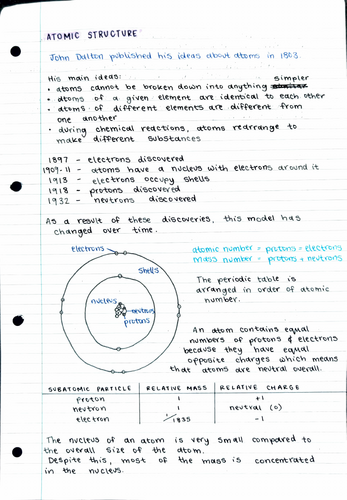 ATOMIC STRUCTURE
John Dalton published his ideas about atoms in 1803.
His main ideas:
simpler
• atoms cannot be broken down into anything
• atoms of a given element are identical to each other
• atoms of different elements are different from
one another
• during chemical reactions, atoms rearrange to
make different substances
1897 - electrons discovered
1909-11 - atoms have a nucleus with electrons around it
1913 - electrons occupy shells
1918 - protons discovered
1932 - neutrons discovered
As a result of these discoveries, this model has
changed over time.
electrons
shells
nucleus
neutrons
protons
atomic number = protons = electrons
mass number = protons + neutrons
The periodic table is
arranged in order of atomic
number.
An atom contains equal
numbers of protons & electrons
because they have equal
opposite charges which means
that atoms are neutral overall.
SUBATOMIC PARTICLE RELATIVE MASS RELATIVE CHARGE
proton 1 +1
neutron 1 neutral (0)
electron 1/1835 -1
The nucleus of an atom is very small compared to
the overall size of the atom.
Despite this, most of the mass is concentrated
in the nucleus.